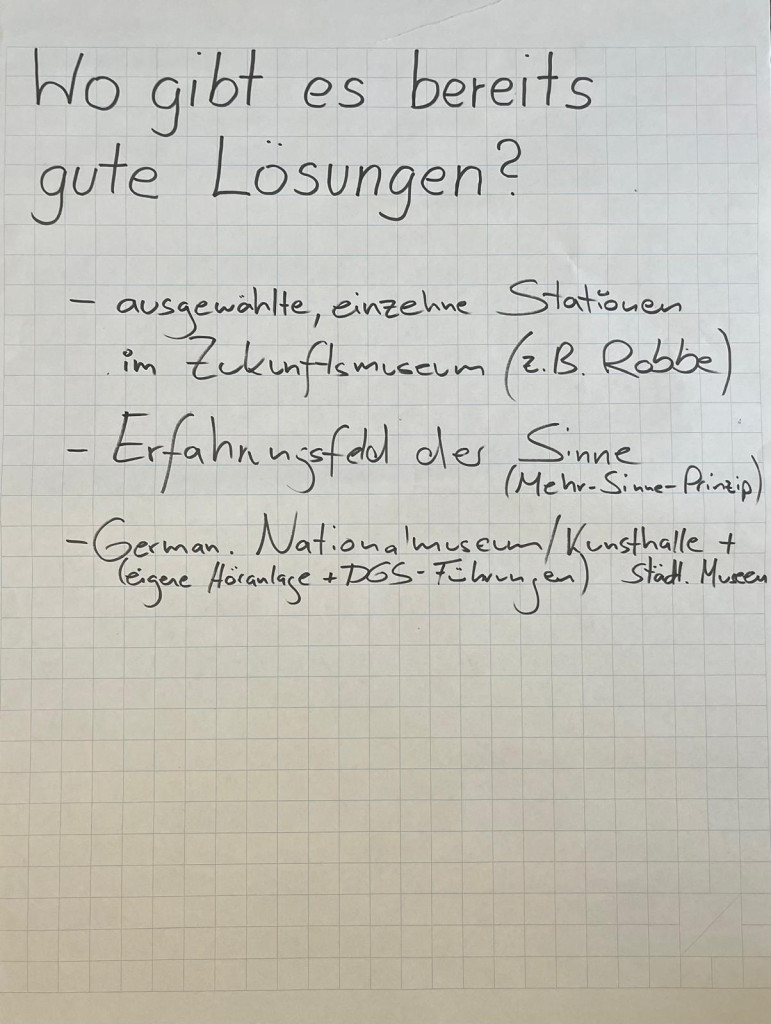 Wo gibt es bereits
gute Lösungen?
- ausgewählte, einzelne Stationen
im Zukunftsmuseum (z.B. Robbe)
- Erfahrungsfeld der Sinne
(Mehr-Sinne-Prinzip)
- German. Nationalmuseum/Kunsthalle +
(eigene Höranlage + DGS-Führungen) Städt. Museen